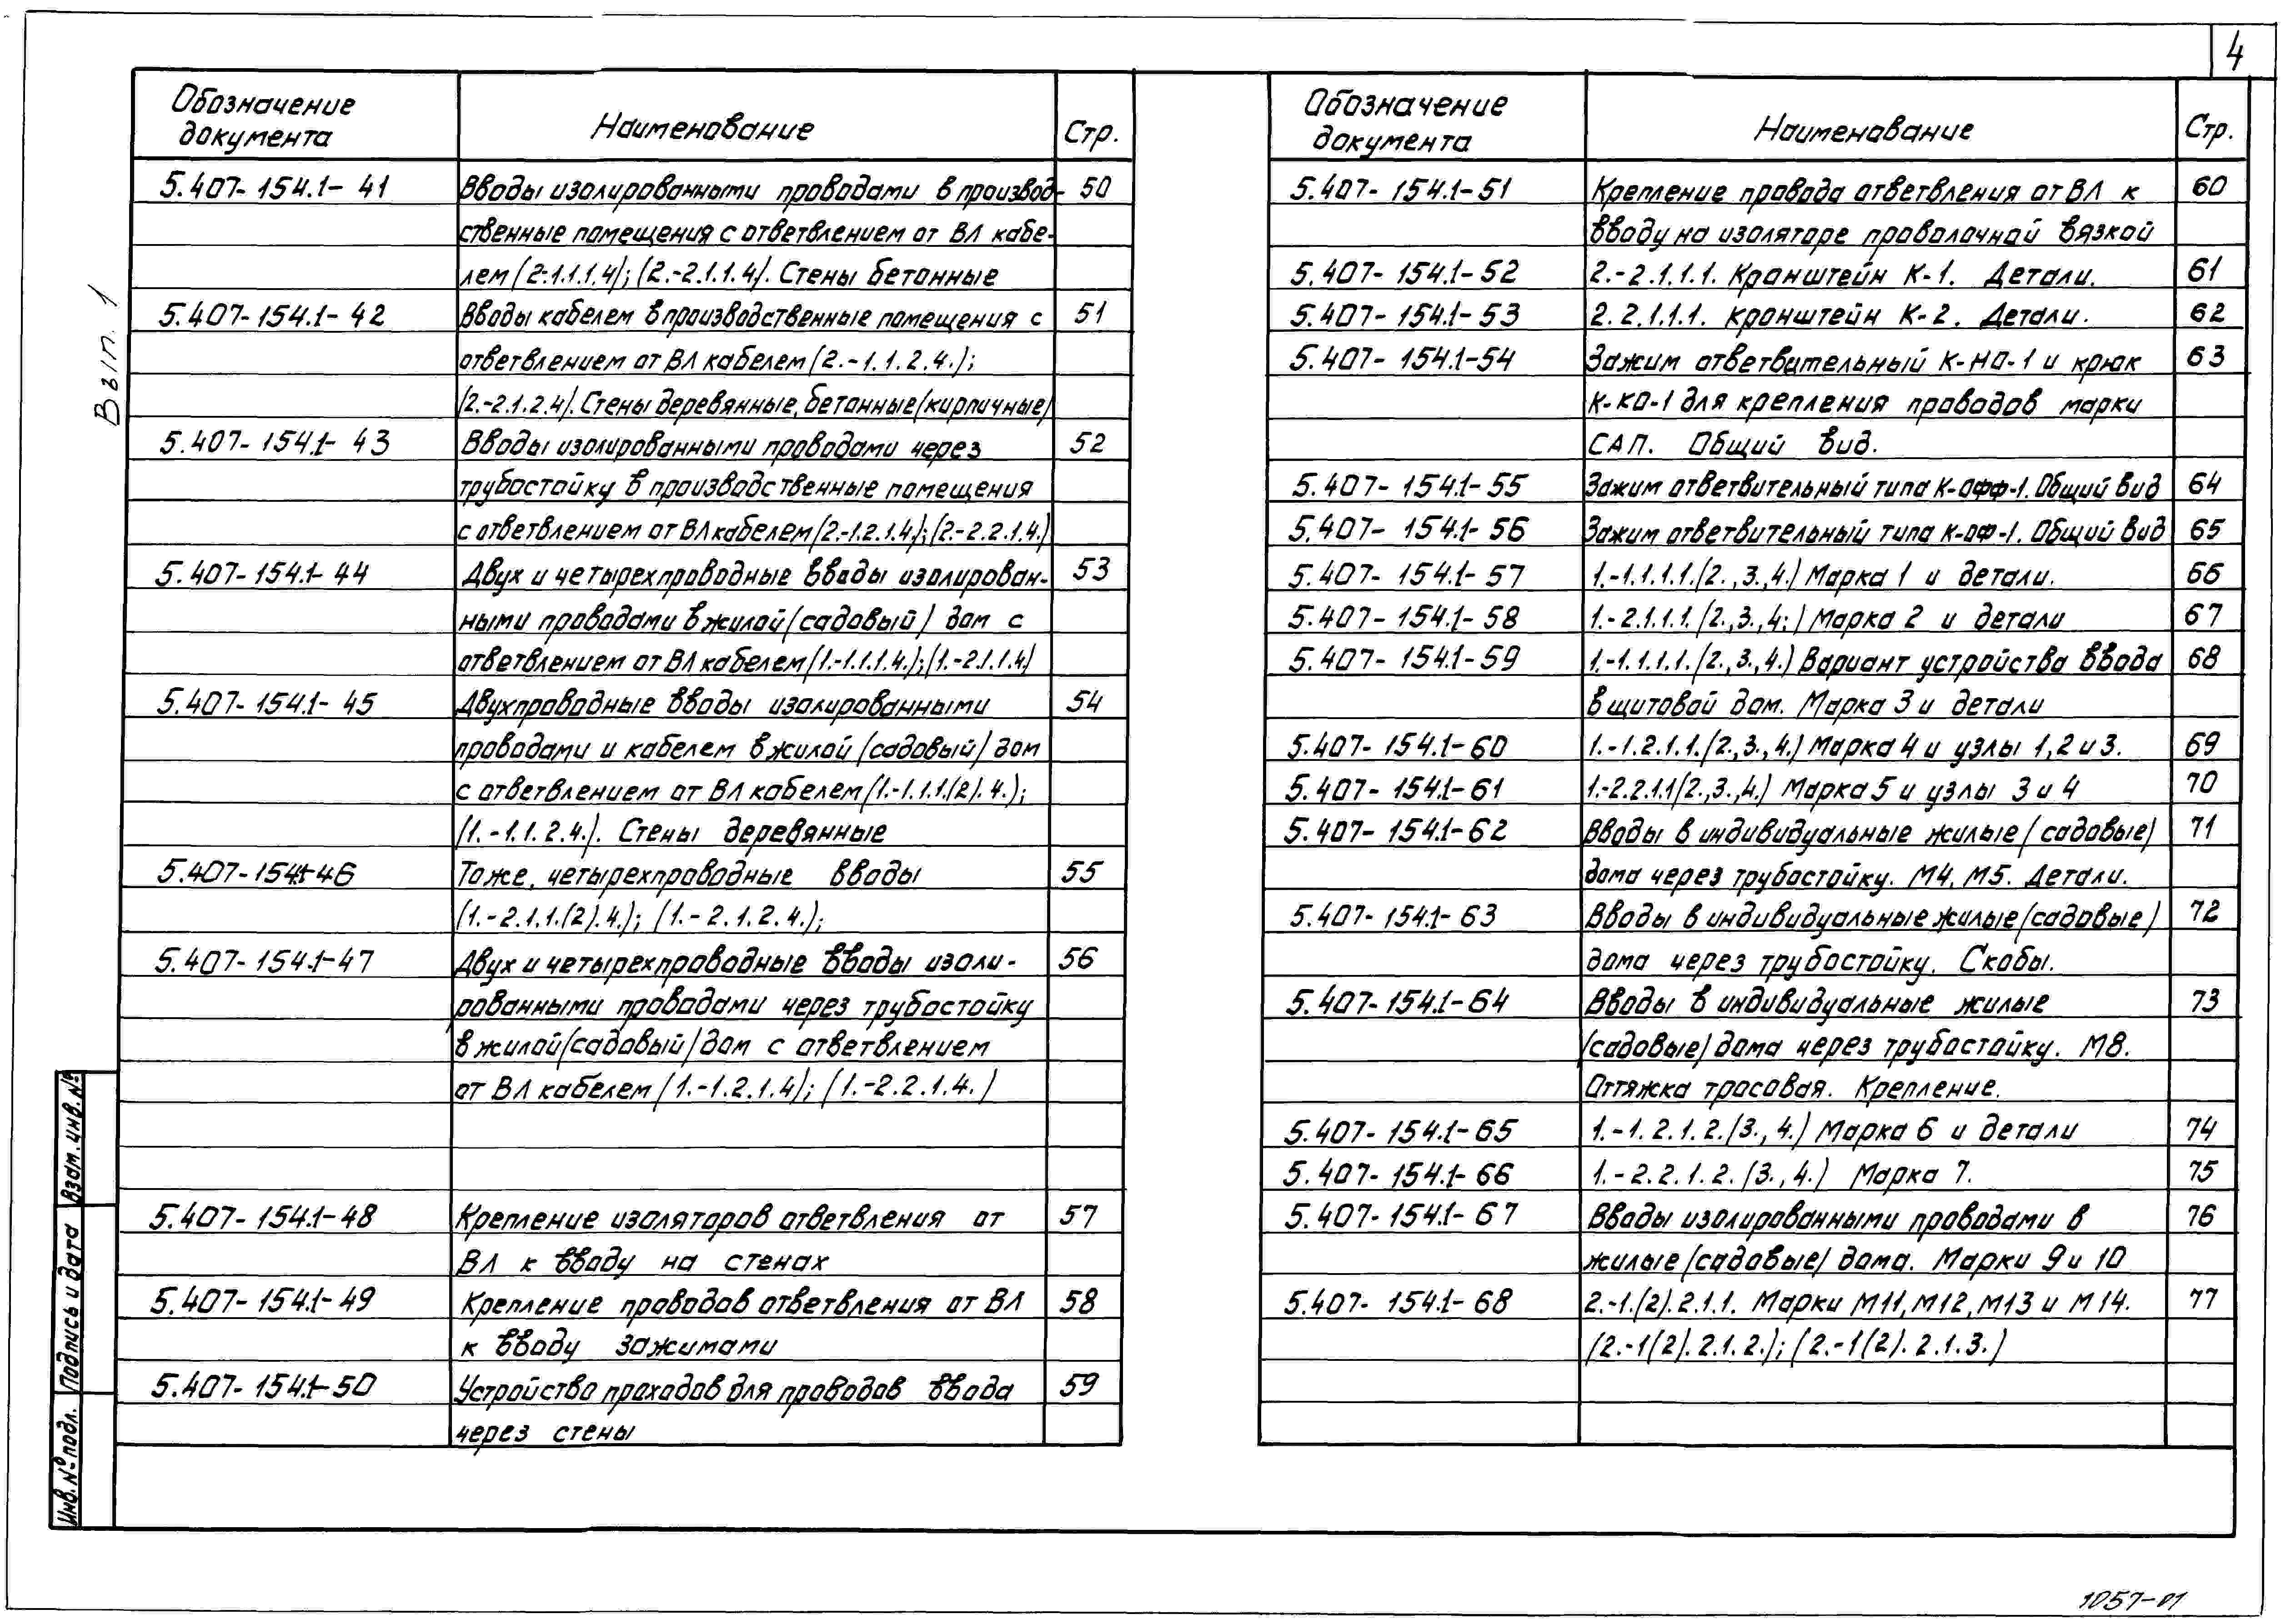 4
Вып. 1
Обозначение документа Наименование Стр.
5.407-154.1-41 Вводы изолированными проводами в производ- 50
ственные помещения с ответвлением от ВЛ кабе-
лем (2-1.1.1.4); (2.-2.1.1.4). Стены бетонные
5.407-154.1-42 Вводы кабелем в производственные помещения с 51
ответвлением от ВЛ кабелем (2.-1.1.2.4.);
(2.-2.1.2.4). Стены деревянные, бетонные (кирпичные)
5.407-154.1-43 Вводы изолированными проводами через 52
трубостойку в производственные помещения
с ответвлением от ВЛ кабелем (2.-1.2.1.4.); (2.-2.2.1.4.)
5.407-154.1-44 Двух и четырехпроводные вводы изолирован- 53
ными проводами в жилой (садовый) дом с
ответвлением от ВЛ кабелем (1.-1.1.1.4.); (1.-2.1.1.4.)
5.407-154.1-45 Двухпроводные вводы изолированными 54
проводами и кабелем в жилой (садовый) дом
с ответвлением от ВЛ кабелем (1.-1.1.1.(2).4.);
(1.-1.1.2.4.). Стены деревянные
5.407-154.1-46 Тоже, четырехпроводные вводы 55
(1.-2.1.1.(2).4.); (1.-2.1.2.4.);
5.407-154.1-47 Двух и четырехпроводные вводы изоли- 56
рованными проводами через трубостойку
в жилой (садовый) дом с ответвлением
от ВЛ кабелем (1.-1.2.1.4); (1.-2.2.1.4.)
5.407-154.1-48 Крепление изоляторов ответвления от 57
ВЛ к вводу на стенах
5.407-154.1-49 Крепление проводов ответвления от ВЛ 58
к вводу зажимами
5.407-154.1-50 Устройство проходов для проводов ввода 59
через стены
Обозначение документа Наименование Стр.
5.407-154.1-51 Крепление провода ответвления от ВЛ к 60
вводу на изоляторе проволочной вязкой
5.407-154.1-52 2.-2.1.1.1. Кронштейн К-1. Детали. 61
5.407-154.1-53 2.2.1.1.1. Кронштейн К-2. Детали. 62
5.407-154.1-54 Зажим ответвительный К-НО-1 и крюк 63
К-КО-1 для крепления проводов марки
САП. Общий вид.
5.407-154.1-55 Зажим ответвительный типа К-ОФФ-1. Общий вид 64
5.407-154.1-56 Зажим ответвительный типа К-ОФ-1. Общий вид 65
5.407-154.1-57 1.-1.1.1.1.(2.,3.,4.) Марка 1 и детали. 66
5.407-154.1-58 1.-2.1.1.1.(2.,3.,4.) Марка 2 и детали 67
5.407-154.1-59 1.-1.1.1.1.(2.,3.,4.) Вариант устройства ввода 68
в щитовой дом. Марка 3 и детали
5.407-154.1-60 1.-1.2.1.1.(2.,3.,4.) Марка 4 и узлы 1,2 и 3. 69
5.407-154.1-61 1.-2.2.1.1(2.,3.,4.) Марка 5 и узлы 3 и 4 70
5.407-154.1-62 Вводы в индивидуальные жилые (садовые) 71
дома через трубостойку. М4, М5. Детали.
5.407-154.1-63 Вводы в индивидуальные жилые (садовые) 72
дома через трубостойку. Скобы.
5.407-154.1-64 Вводы в индивидуальные жилые 73
(садовые) дома через трубостойку. М8.
Оттяжка тросовая. Крепление.
5.407-154.1-65 1.-1.2.1.2.(3.,4.) Марка 6 и детали 74
5.407-154.1-66 1.-2.2.1.2.(3.,4.) Марка 7. 75
5.407-154.1-67 Вводы изолированными проводами в 76
жилые (садовые) дома. Марки 9 и 10
5.407-154.1-68 2.-1.(2).2.1.1. Марки М11, М12, М13 и М14. 77
(2.-1(2).2.1.2.); (2.-1(2).2.1.3.)
Взам. инв. №
Подпись и дата
Инв. № подл.
1057-01